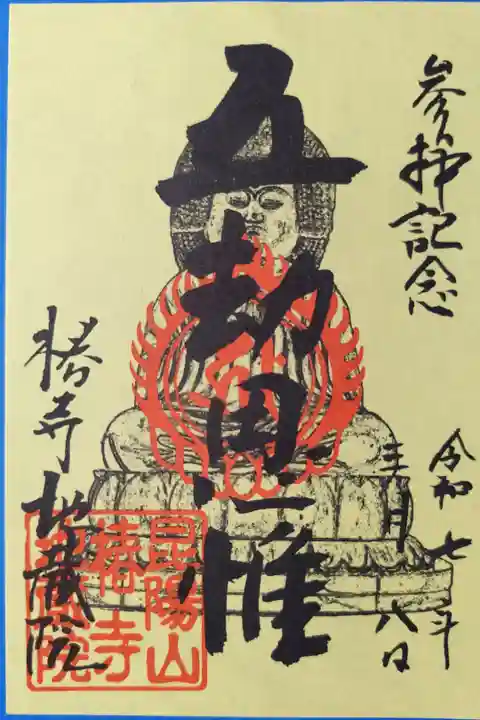 参拝記念
令和七年
月八日
五劫思惟
椿寺地蔵院
昆陽山
椿寺
地蔵院